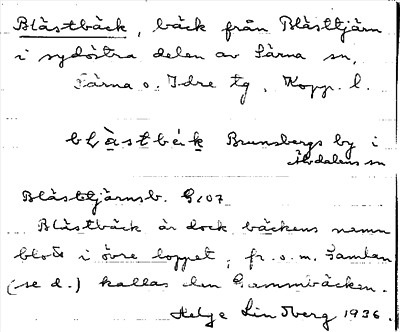 Blästbäck, bäck från Blästtjärn
i sydöstra delen av Särna sn,
Särna o. Idre tg, Kopp. l.
Brunsbergs by i
Älvdalens sn
Blästtjärnsb. G:07
Blästbäck är dock bäckens namn
blott i övre loppet, fr. o. m. Gamtan
(se d.) kallas den Gammbäcken.
Helge Lindberg 1936.